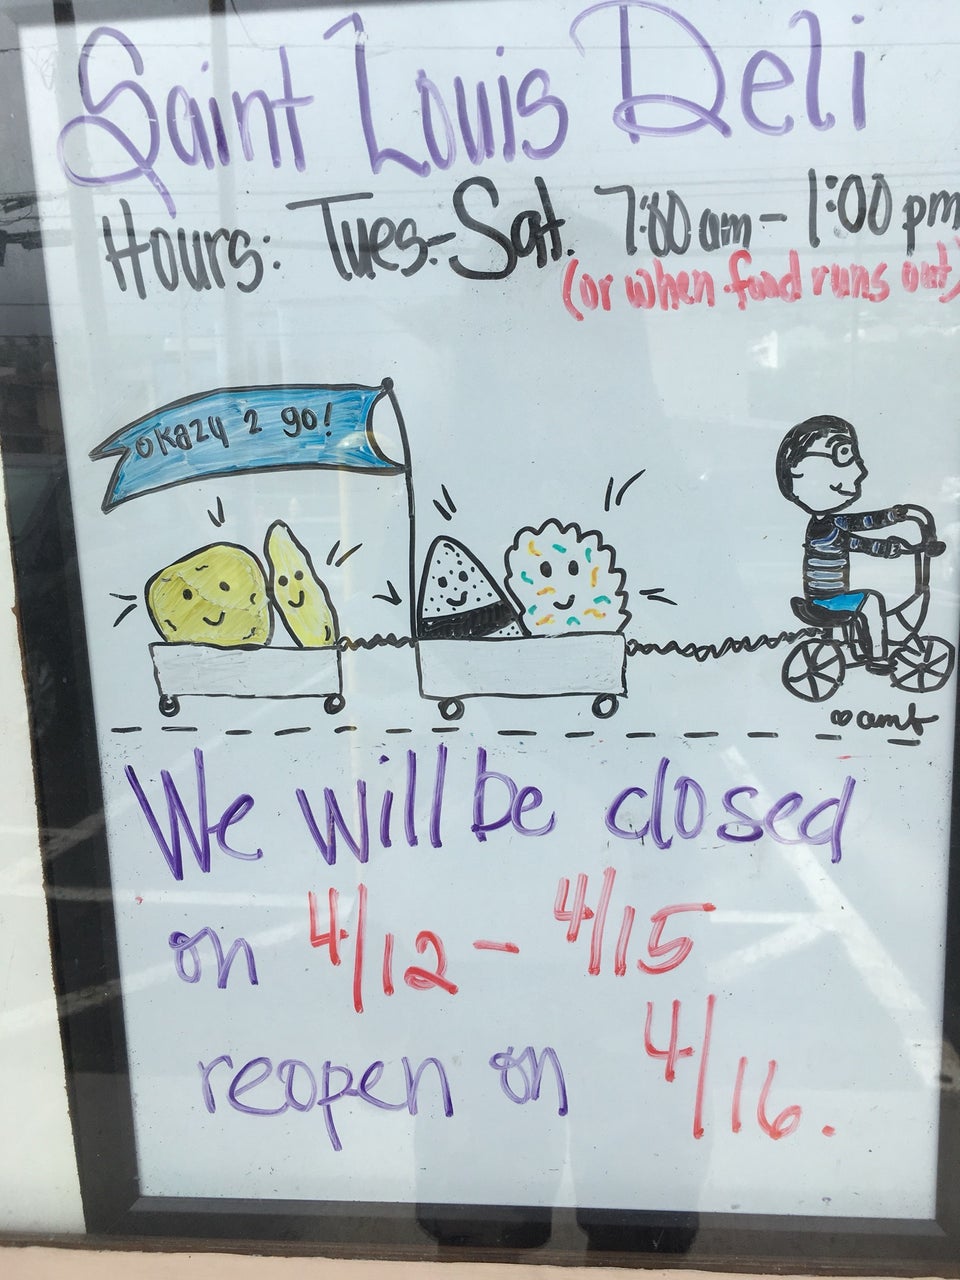 Saint Louis Deli
Hours: Tues.-Sat. 7:00 am - 1:00 pm
(or when food runs out)
okazy 2 go!
We will be closed
on 4/12 - 4/15
reopen on 4/16.